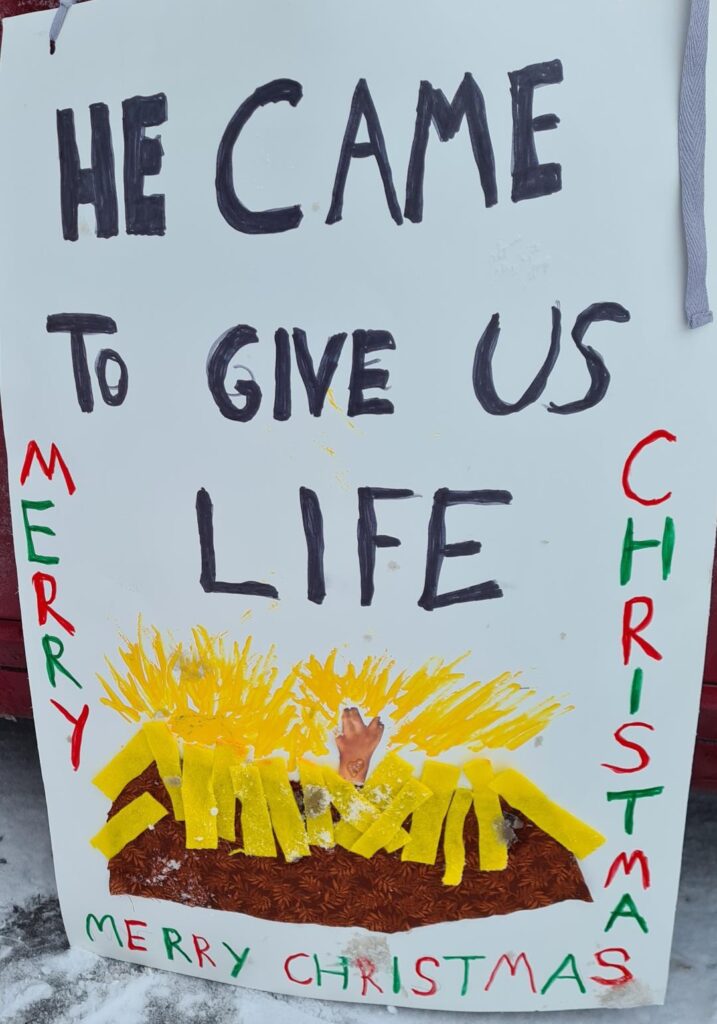 HE CAME
TO GIVE US
LIFE
MERRY
CHRISTMAS
MERRY CHRISTMAS